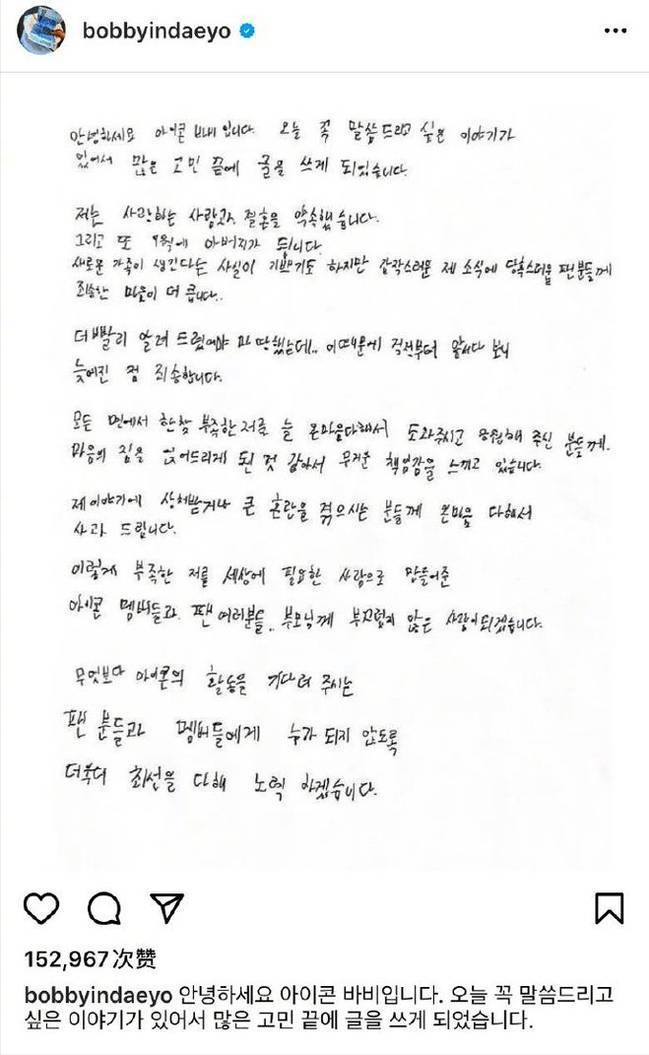 bobbyindaeyo
안녕하세요 아이콘 바비 입니다. 오늘 꼭 말씀드리고 싶은 이야기가
있어서 많은 고민 끝에 글을 쓰게 되었습니다.
저는 사랑하는 사람과 결혼을 약속했습니다.
그리고 또 9월에 아버지가 됩니다.
새로운 가족이 생긴다는 사실이 기쁘기도 하지만 갑작스러운 제 소식에 당혹스러울 팬분들께
죄송한 마음이 더 큽니다..
더 빨리 알려 드렸어야 마땅했는데.. 이 때문에 걱정부터 앞서다 보니
늦어진 점 죄송합니다.
모든 면에서 한참 부족한 저를 늘 온마음다해서 도와주시고 응원해 주신 분들께.
마음의 짐을 얹어드리게 된 것 같아서 무거운 책임감을 느끼고 있습니다.
제 이야기에 상처받거나 큰 혼란을 겪으시는 분들께 온마음 다해서
사과 드립니다.
이렇게 부족한 저를 세상에 필요한 사람으로 만들어준
아이콘 멤버들과 팬 여러분들.. 부모님께 부끄럽지 않은 사람이되겠습니다.
무엇보다 아이콘의 활동을 기다려 주시는
팬 분들과 멤버들에게 누가 되지 않도록
더욱더 최선을 다해 노력 하겠습니다.
152,967次赞
bobbyindaeyo 안녕하세요 아이콘 바비입니다. 오늘 꼭 말씀드리고
싶은 이야기가 있어서 많은 고민 끝에 글을 쓰게 되었습니다.